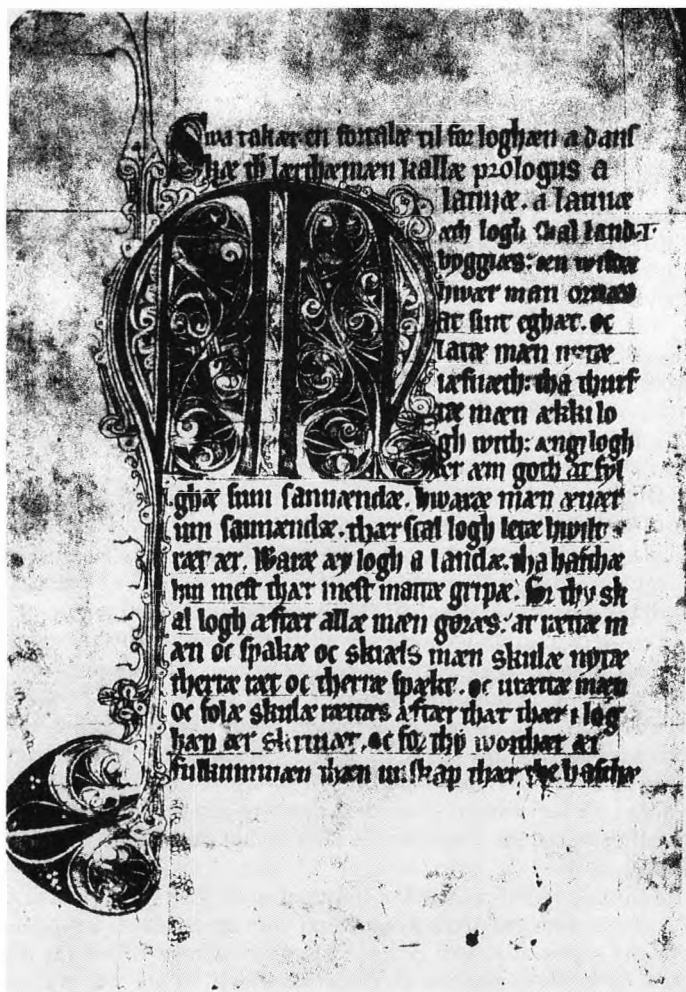 Swa takær en fortalæ til for loghæn a dans
kæ th lærthæmæn kallæ prologus a
latinæ. a latinæ
Mæth logh skal land.
byggiæs: æn wildæ
hwær man ornæs
at sint eghæt. oc
latæ mæn nytæ
iæfnæth: tha thurf
tæ mæn ækki lo
gh with: ængi logh
ær æm goth at fyl
ghæ sum sannændæ. hwaræ mæn æuær
um sannændæ. thær scal logh letæ hwilt
ræt ær. Waræ æy logh a landæ. tha hafthæ
hin mest thær mest mattæ gripæ. for thy sk
al logh æftær allæ mæn gøræs: at rættæ m
æn oc spakæ oc skiæls mæn skulæ nytæ
therræ ræt oc therræ spækt. oc urættæ mæn
oc folæ skulæ rættæs æftær that thær i log
hæn ær skriuæt. oc for thy worthær ær
fulkummæn thæn uiskap thær the hafthæ